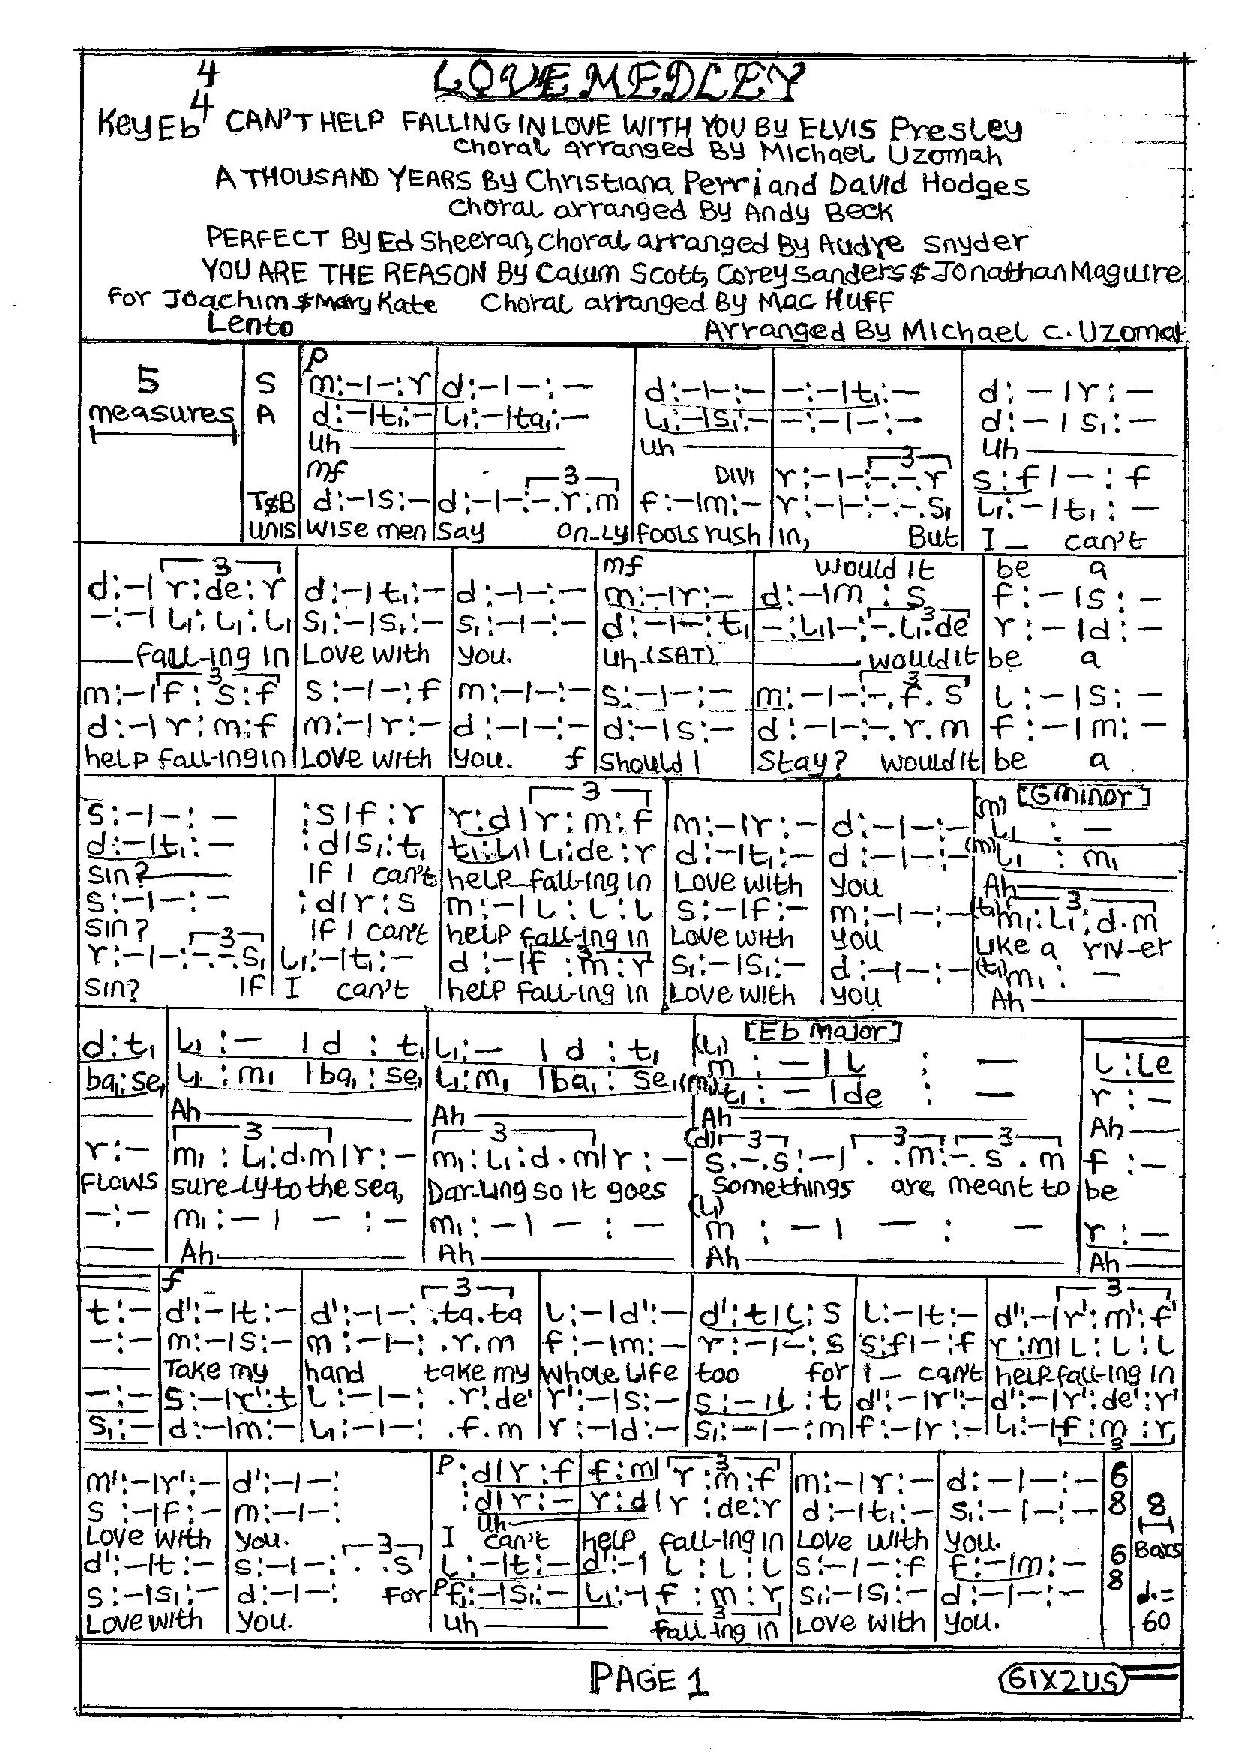 LOVE MEDLEY
4
4
Key Eb CAN'T HELP FALLING IN LOVE WITH YOU By ELVIS Presley
Choral arranged By Michael Uzomah
A THOUSAND YEARS By Christiana Perri and David Hodges
Choral arranged By Andy Beck
PERFECT By Ed Sheeran, Choral arranged By Audye Snyder
YOU ARE THE REASON By Calum Scott, Corey Sanders & Jonathan Maguire
For Joachim & Mary Kate Choral arranged By Mac Huff
Lento Arranged By Michael C. Uzomah
p
5 S m:-|-:r d:-|-:- d:-|-:- -:-|t₁:- d:-|r:-
measures A d:-|t₁:- l₁:-|ta₁:- l₁:-|s₁:- -:-|-:- d:-|s₁:-
Uh Uh Uh
mf 3 DIVI r:-|-:-.-.r s:f|-:f
T&B d:-|s:- d:-|-:-.r:m f:-|m:- r:-|-:-.-.s₁ l₁:-|t₁:-
UNIS Wise men say on-ly fools rush in, But I _ can't
3 mf would it be a
d:-|r:de:r d:-|t₁:- d:-|-:- m:-|r:- d:-|m:s f:-|s:-
-:-|l₁:l₁:l₁ s₁:-|s₁:- s₁:-|-:- d:-|-:t₁ -:l₁|-:-.l₁:de r:-|d:-
falling in Love with you. Uh (SAT) would it be a
m:-|f:s:f s:-|-:f m:-|-:- s:-|-:- m:-|-:-.f.s l:-|s:-
d:-|r:m:f m:-|r:- d:-|-:- d:-|s:- d:-|-:-.r.m f:-|m:-
help fall-ing in Love with you. f Should I Stay? would it be a
3 [G minor]
s:-|-:- :s|f:r r:d|r:m:f m:-|r:- d:-|-:- (m)l₁:-
d:-|t₁:- :d|s₁:t₁ t₁:l₁|l₁:de:r d:-|t₁:- d:-|-:- (m)l₁:m₁
sin? If I can't help falling in Love with you Ah
s:-|-:- :d|r:s m:-|l:l:l s:-|f:- m:-|-:- (ta)m₁:l₁:d.m
sin? If I can't help fall-ing in Love with you Like a riv-er
r:-|-:-.-.s₁ l₁:-|t₁:- d:-|f:m:r s₁:-|s₁:- d:-|-:- (t₁)m₁:-
sin? If I can't help fall-ing in Love with you Ah
[Eb major]
d:t₁ l₁:-|d:t₁ l₁:-|d:t₁ (l₁)m:-|l:- l:le
ba₁:se₁ l₁:m₁|ba₁:se₁ l₁:m₁|ba₁:se₁ (m₁)t₁:-|de:- r:-
Ah Ah Ah Ah
r:- m₁:l₁:d.m|r:- m₁:l₁:d.m|r:- (d)s.-.s:-|. .m:-.s.m f:-
Flows sure-ly to the sea, Dar-ling so it goes Somethings are meant to be
-:- m₁:-|-:- m₁:-|-:- (l₁)m:-|-:- r:-
Ah Ah Ah Ah
f 3 3
t:- d':-|t:- d':-|-:.ta.ta l:-|d':- d':t|l:s l:-|t:- d':-|r':m':f'
-:- m:-|s:- m:-|-:.r.m f:-|m:- r:-|-:s s:f|-:f r:m|l:l:l
Take my hand take my whole Life too for I _ can't help falling in
-:- s:-|r':t l:-|-:.r'.de' r':-|s:- s:-|l:t d':-|r':- d':-|r':de':r'
s₁:- d:-|m:- l₁:-|-:.f.m r:-|d:- s₁:-|-:m f:-|r:- l₁:-|f:m:r
p 3
m':-|r':- d':-|-: :d|r:f f:m|r:m:f m:-|r:- d:-|-:- 6
s:-|f:- m:-|-: :d|r:- r:d|r:de:r d:-|t₁:- s₁:-|-:- 8 8
Love with you. Uh I can't help fall-ing in Love with you. Bars
d':-|t:- s:-|-:. .s l:-|t:- d':-|l:l:l s:-|-:f f:-|m:- 6
s:-|s₁:- d:-|-: For p f₁:-|s₁:- l₁:-|f:m:r s₁:-|s₁:- d:-|-:- 8 d.=
Love with you. Uh fall-ing in Love with you. 60
PAGE 1 61X2US